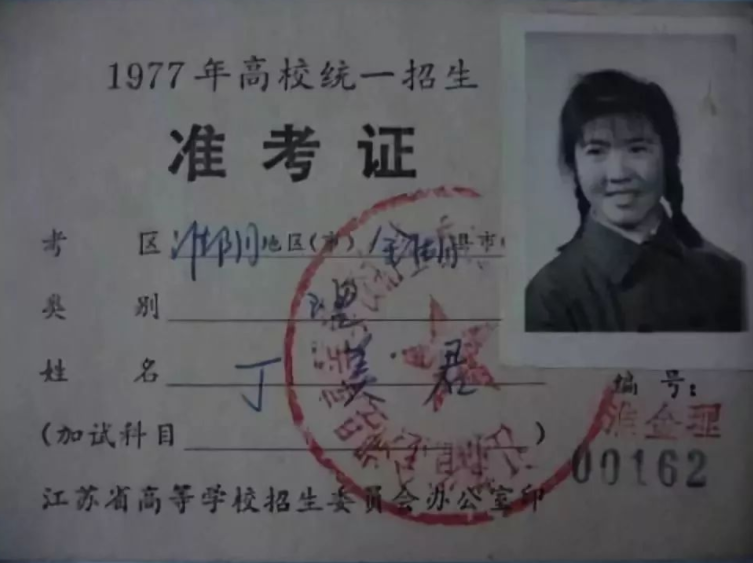 1977年高校统一招生
准考证
考区 淮阴地区(市) 金湖县市
类别 理
姓名 丁美君
(加试科目 )
编号:
淮金理
00162
江苏省高等学校招生委员会办公室印